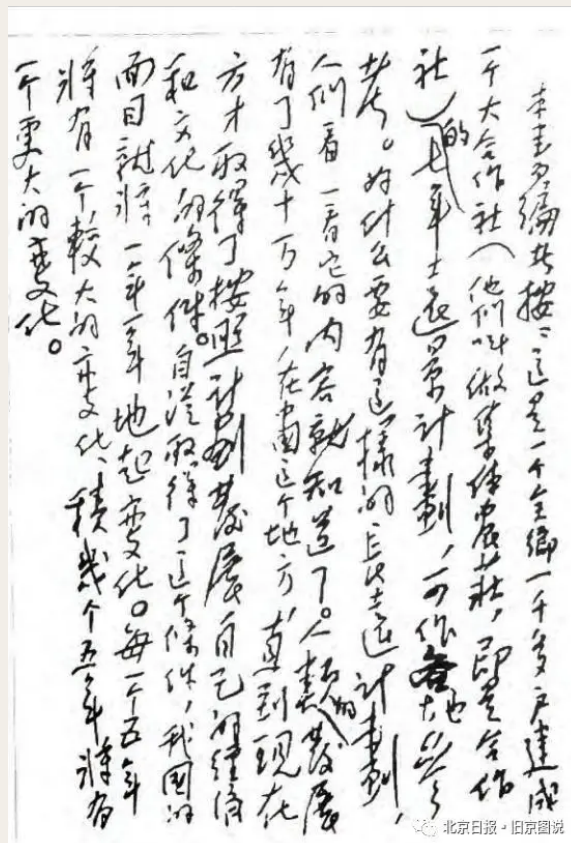 本書編者按:这是一个全鄉一千多户建成
一个大合作社(他们叫做集体農莊,即是合作
社)的七年远景計劃,可作各地参
考。为什么要有这樣的長远計劃,
人们看一看它的内容就知道了。人類的發展
有了幾十万年,在中國这个地方,直到現在
方才取得了按照計劃發展自己的經濟
和文化的條件。自從取得了这个條件,我國的
面目就將一年一年地起变化。每一个五年
將有一个較大的变化,積幾个五年將有
一个更大的变化。
北京日报·旧京图说